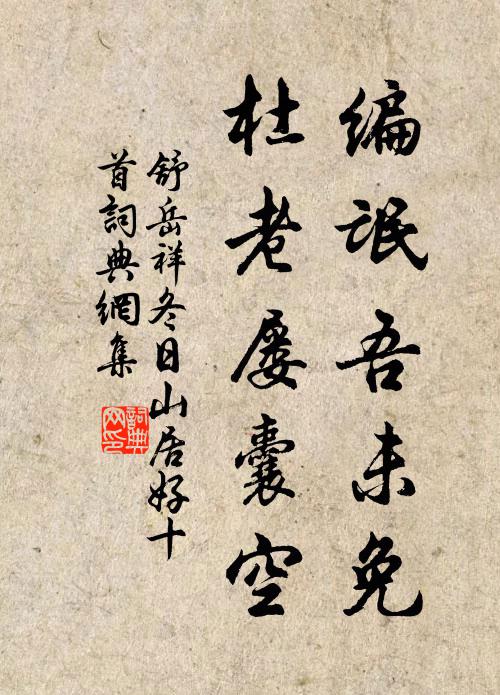 编氓吾未免
杜老屡囊空
舒岳祥冬日山居好十
首詞典網集
詞典
网印